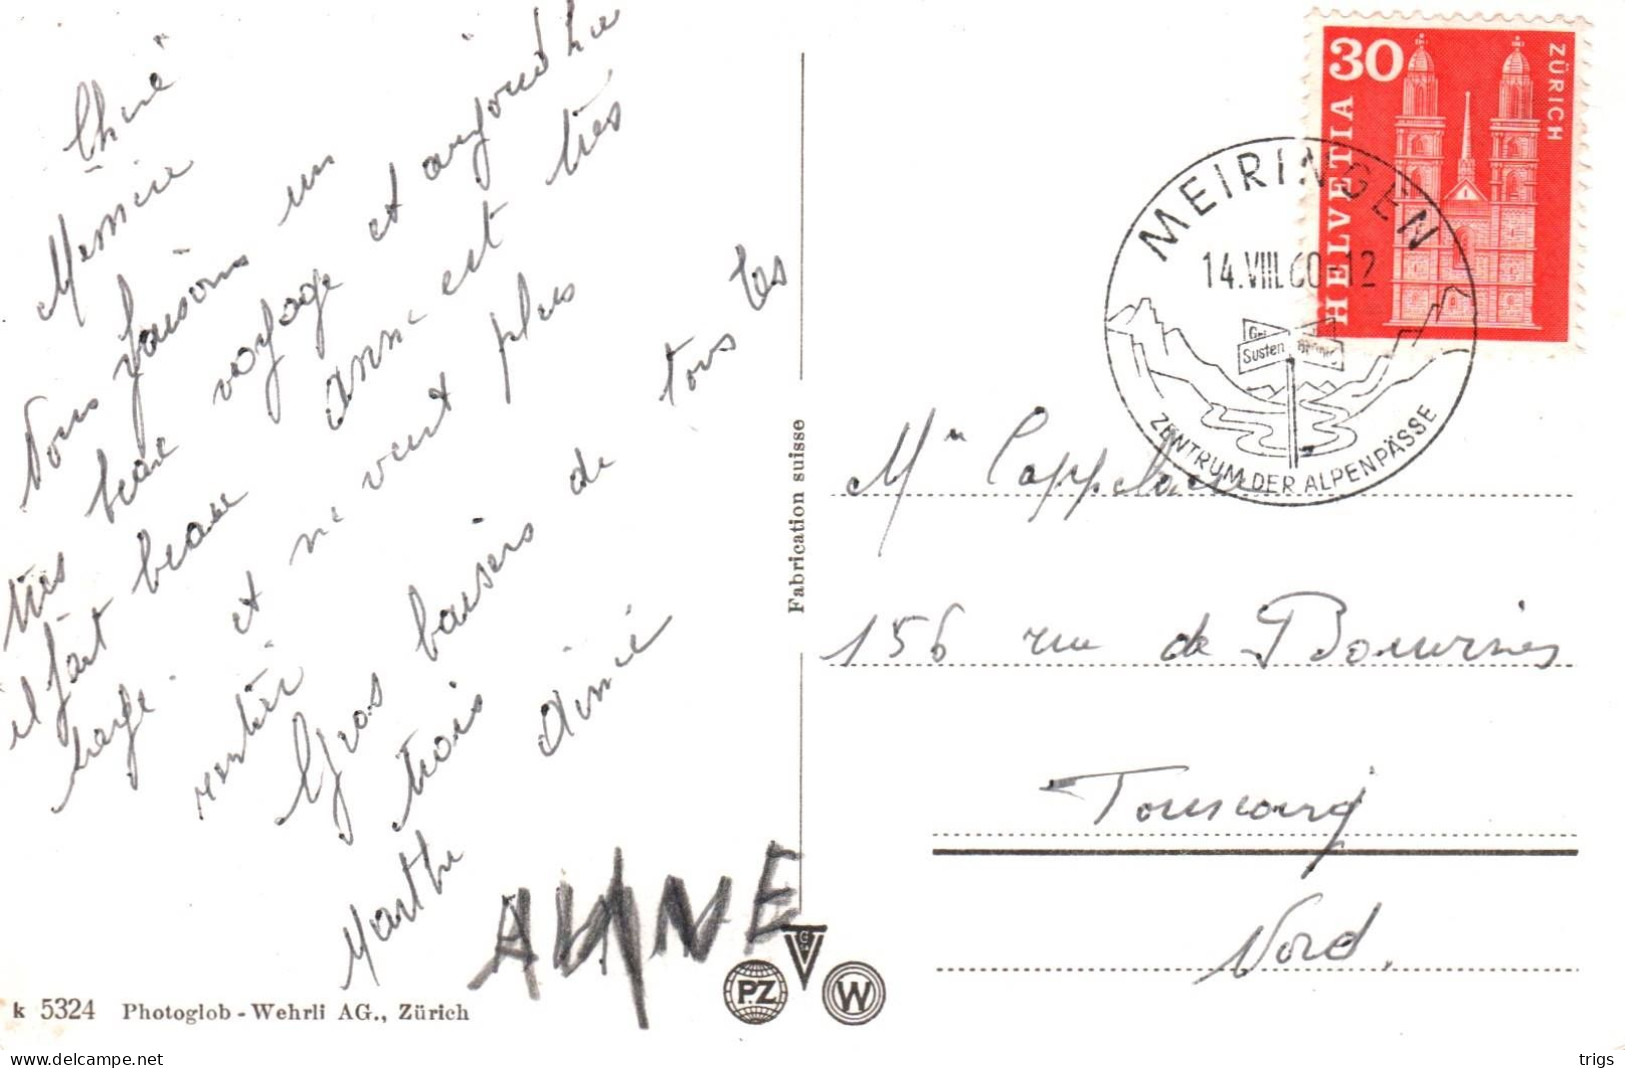 Chère
Mémère
Nous faisons un
très beau voyage et aujourd'hu
il fait beau Anne est très
sage et ne veut plus
rentrer
Gros baisers de tous les
trois Aimé
Marthe
ALINE
k 5324 Photoglob - Wehrli AG., Zürich
Fabrication suisse
PZ
W
30
HELVETIA
ZÜRICH
MEIRINGEN
14.VIII.60-12
Susten
ZENTRUM DER ALPENPÄSSE
Mme Cappelaere
156 rue de Bouvines
Tourcoing
Nord.
delcampe.net
trigs